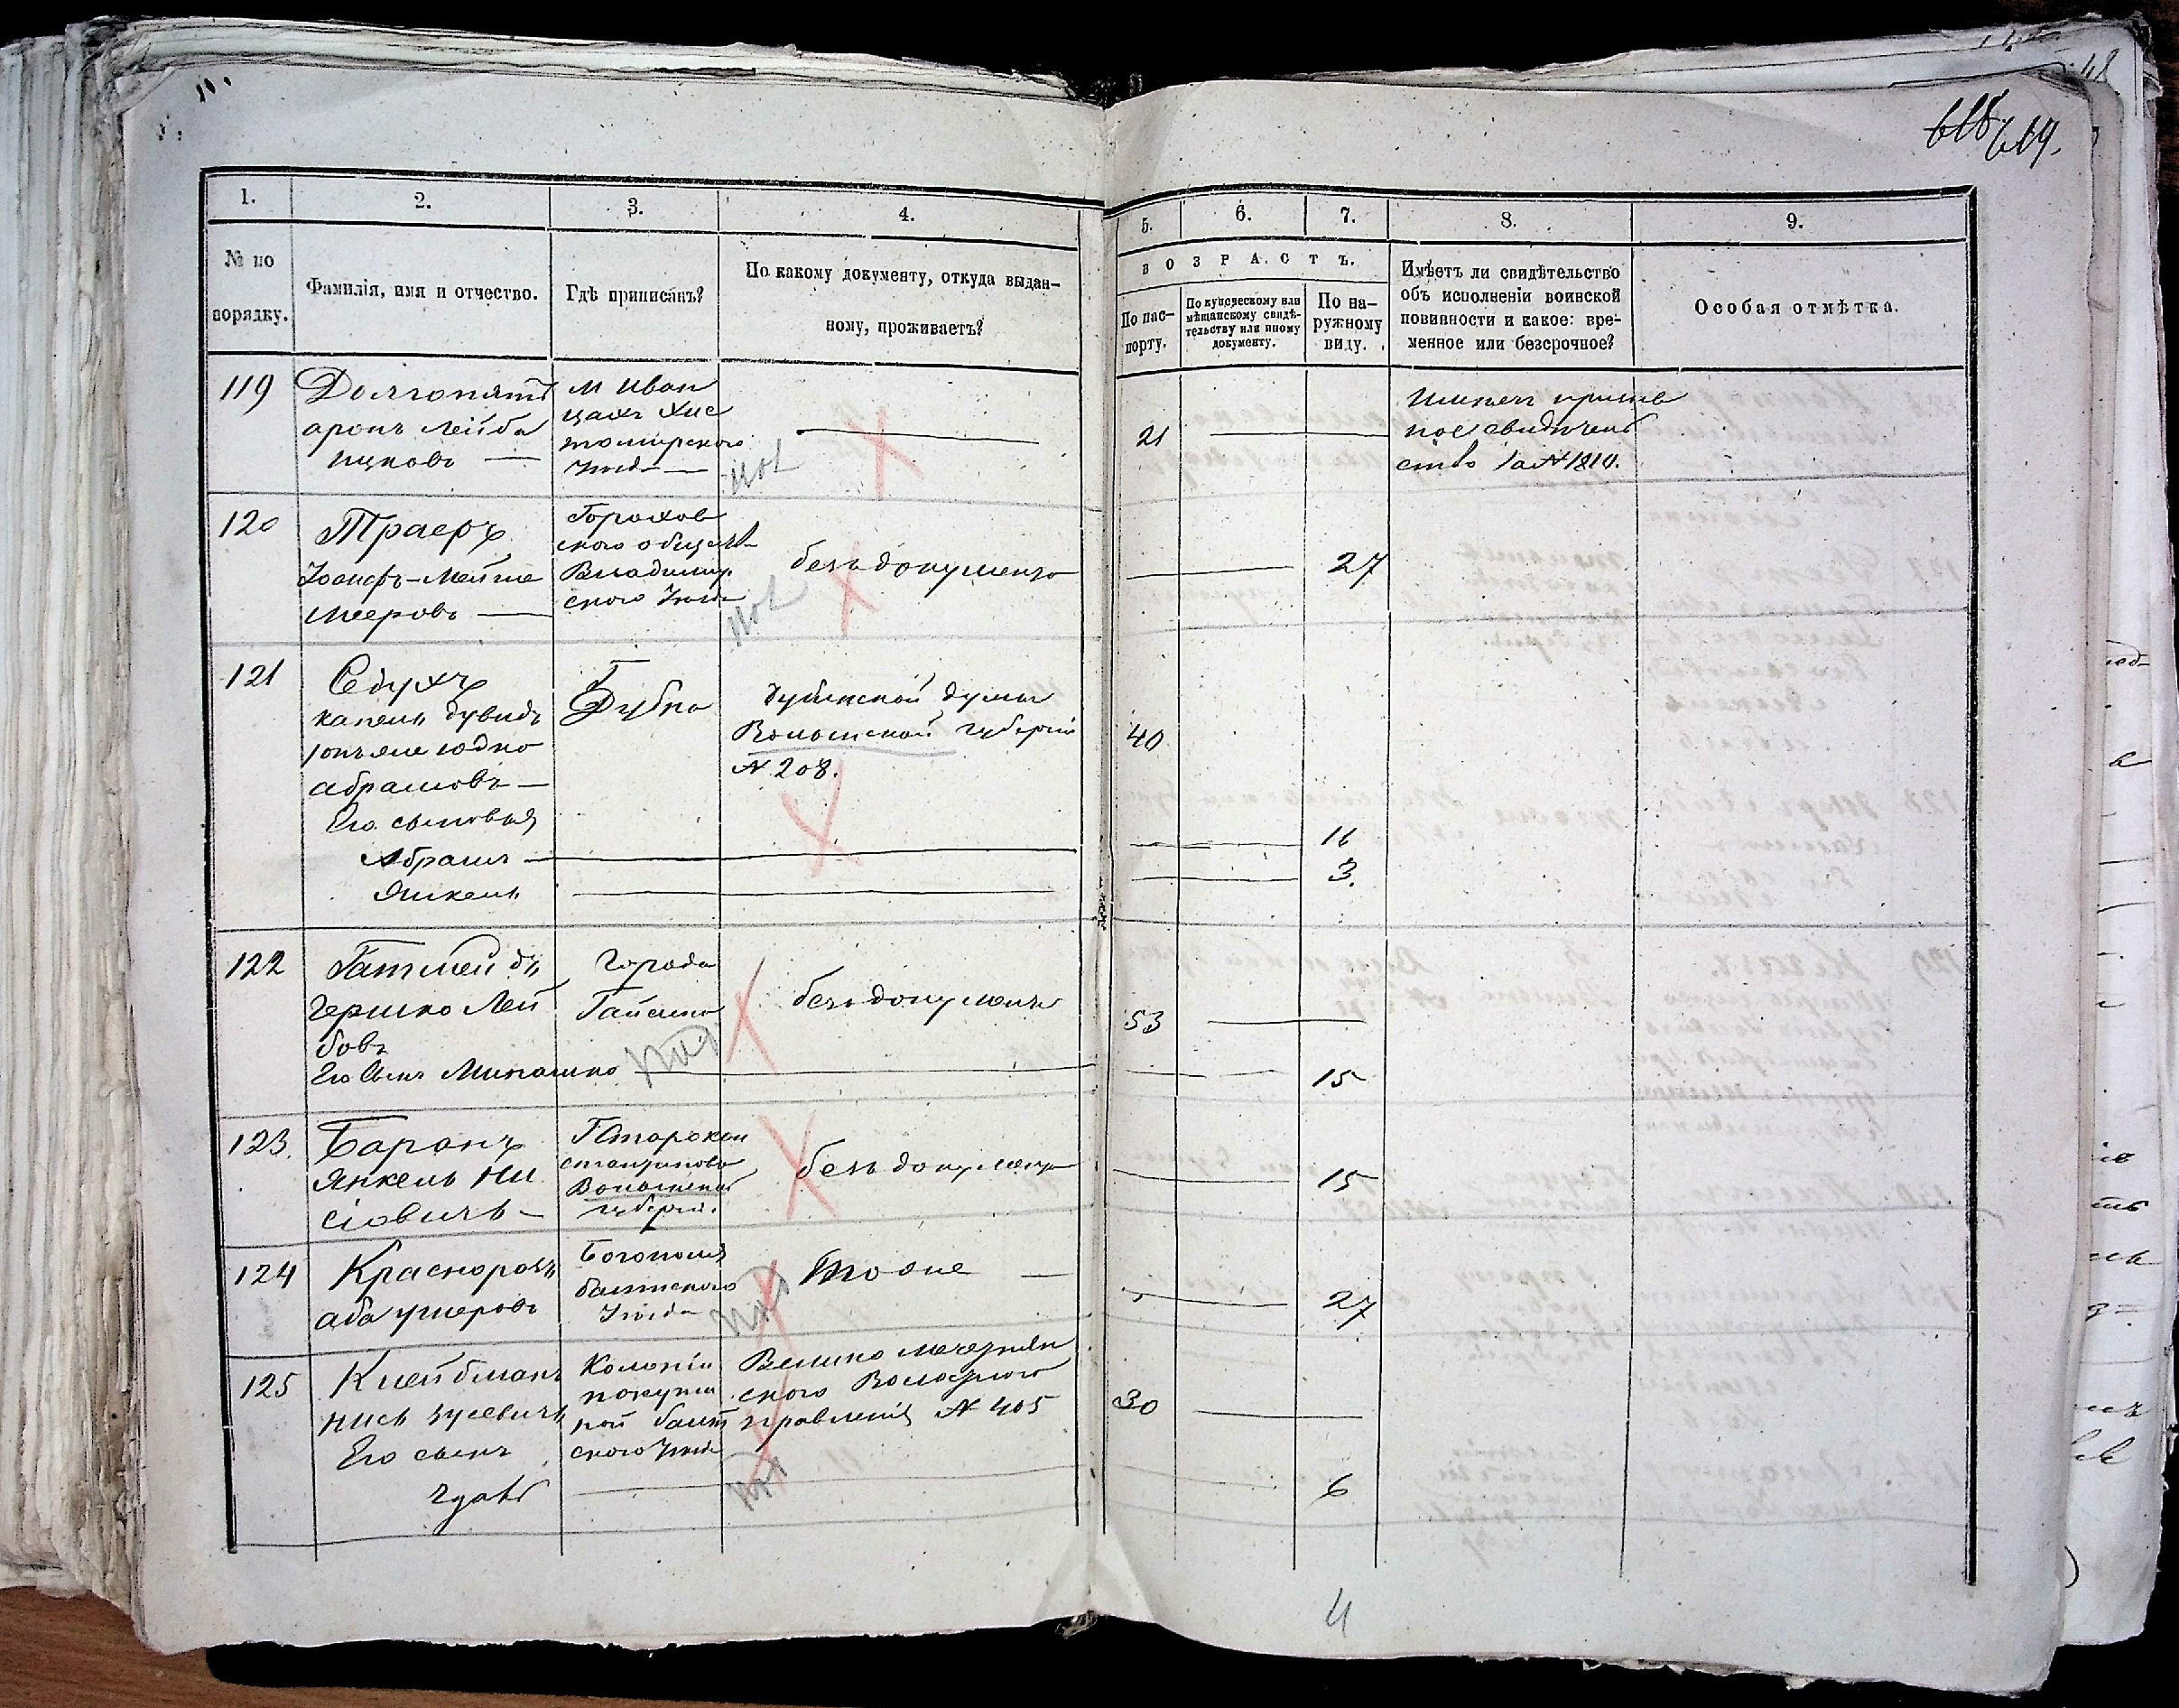 618 619.
1. 2. 3. 4. 5. 6. 7. 8. 9.
№ по порядку.
Фамилія, имя и отчество.
Гдѣ приписанъ?
По какому документу, откуда выдан-
ному, проживаетъ?
ВОЗРАСТЪ.
По пас-
порту.
По купеческому или
мѣщанскому свидѣ-
тельству или иному
документу.
По на-
ружному
виду.
Имѣетъ ли свидѣтельство
объ исполненіи воинской
повинности и какое: вре-
менное или безсрочное?
Особая отмѣтка.
119
Долгопятъ
аронъ Лейба
ицковъ —
м Иван
цахъ Жис
томирского
21
ное свидѣтель
ство за № 1810.
120
Траеръ
Іосифъ-Мейше
Мееровъ —
Горохов
ского общест
Владимир
ского Уѣзда
безъ документа
27
121
Седухъ
дувидъ
юдко
абрамовъ —
Его сыновья
Абрамъ
Янкель
Г
Дубно
дубенской думы
Волынской губерніи
№ 208.
40
16
3.
122
Гершко Лей
бовъ
Его сынъ
города
Гайсина
безъ документа
53
15
123.
Баранъ
Янкель Ни
сіовичъ —
Г Староко
стантиново
Волынской
губерніи.
безъ документа
15
124
аба
Богополя
балтского
Уѣзда
Тоже —
27
125
Клейбманъ
Его сынъ
Колоніи
балт
ского Уѣзда
Велико мечетнян
ского Волостного
правленія № 405
30
6
4